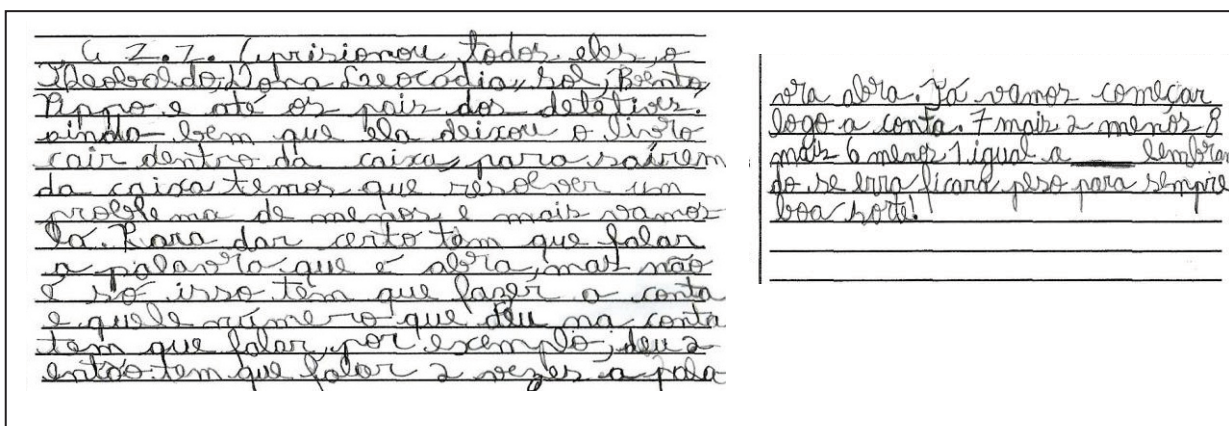 G Z.Z. Aprisionou todos eles, o
Theobaldo, Dona Leocádia, Sol, Bento,
Pippo e até os pais dos detetives.
ainda bem que ela deixou o livro
cair dentro da caixa, para saírem
da caixa temos que resolver um
problema de menos e mais vamos
lá. Para dar certo tem que falar
a palavra que é abra, mas não
é só isso tem que fazer a conta
e quele número que deu na conta
tem que falar, por exemplo, deu 2
então tem que falar 2 vezes a pala
vra abra. Já vamos começar
logo a conta. 7 mais 2 menos 8
mais 6 menos 1 igual a ____ lembran
do se erra ficara peso para sempre
boa sorte!